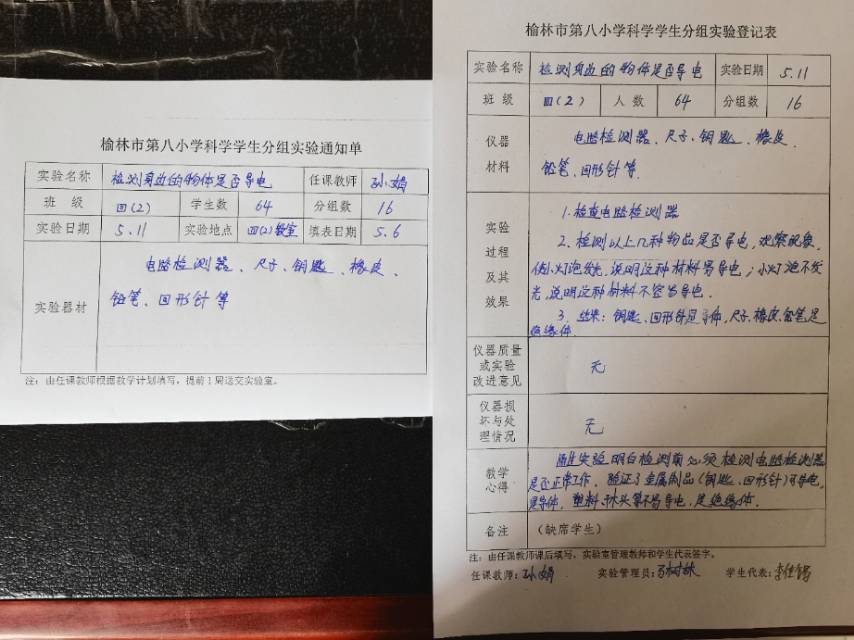 榆林市第八小学科学学生分组实验通知单
实验名称 检测身边的物体是否导电 任课教师 孙娟
班 级 四(2) 学生数 64 分组数 16
实验日期 5.11 实验地点 四(2)教室 填表日期 5.6
实验器材
电路检测器、尺子、钥匙、橡皮、
铅笔、回形针等
注：由任课教师根据教学计划填写，提前1周送交实验室。
榆林市第八小学科学学生分组实验登记表
实验名称 检测身边的物体是否导电 实验日期 5.11
班 级 四(2) 人 数 64 分组数 16
仪器
材料
电路检测器、尺子、钥匙、橡皮、
铅笔、回形针等.
实验
过程
及其
效果
1.检查电路检测器
2.检测以上几种物品是否导电,观察现象,
使小灯泡发光,说明这种材料易导电;小灯泡不发
光,说明这种材料不容易导电.
3.结果:钥匙、回形针是导体,尺子、橡皮、铅笔是
绝缘体.
仪器质量
或实验
改进意见
无
仪器损
坏与处
理情况
无
教学
心得
通过实验明白检测前必须检测电路检测器
是否正常工作。验证了金属制品(钥匙、回形针)可导电,
是导体,塑料、木头等不易导电,是绝缘体.
备注 (缺席学生)
注：由任课教师课后填写，实验室管理教师和学生代表签字。
任课教师:孙娟 实验管理员: 学生代表: